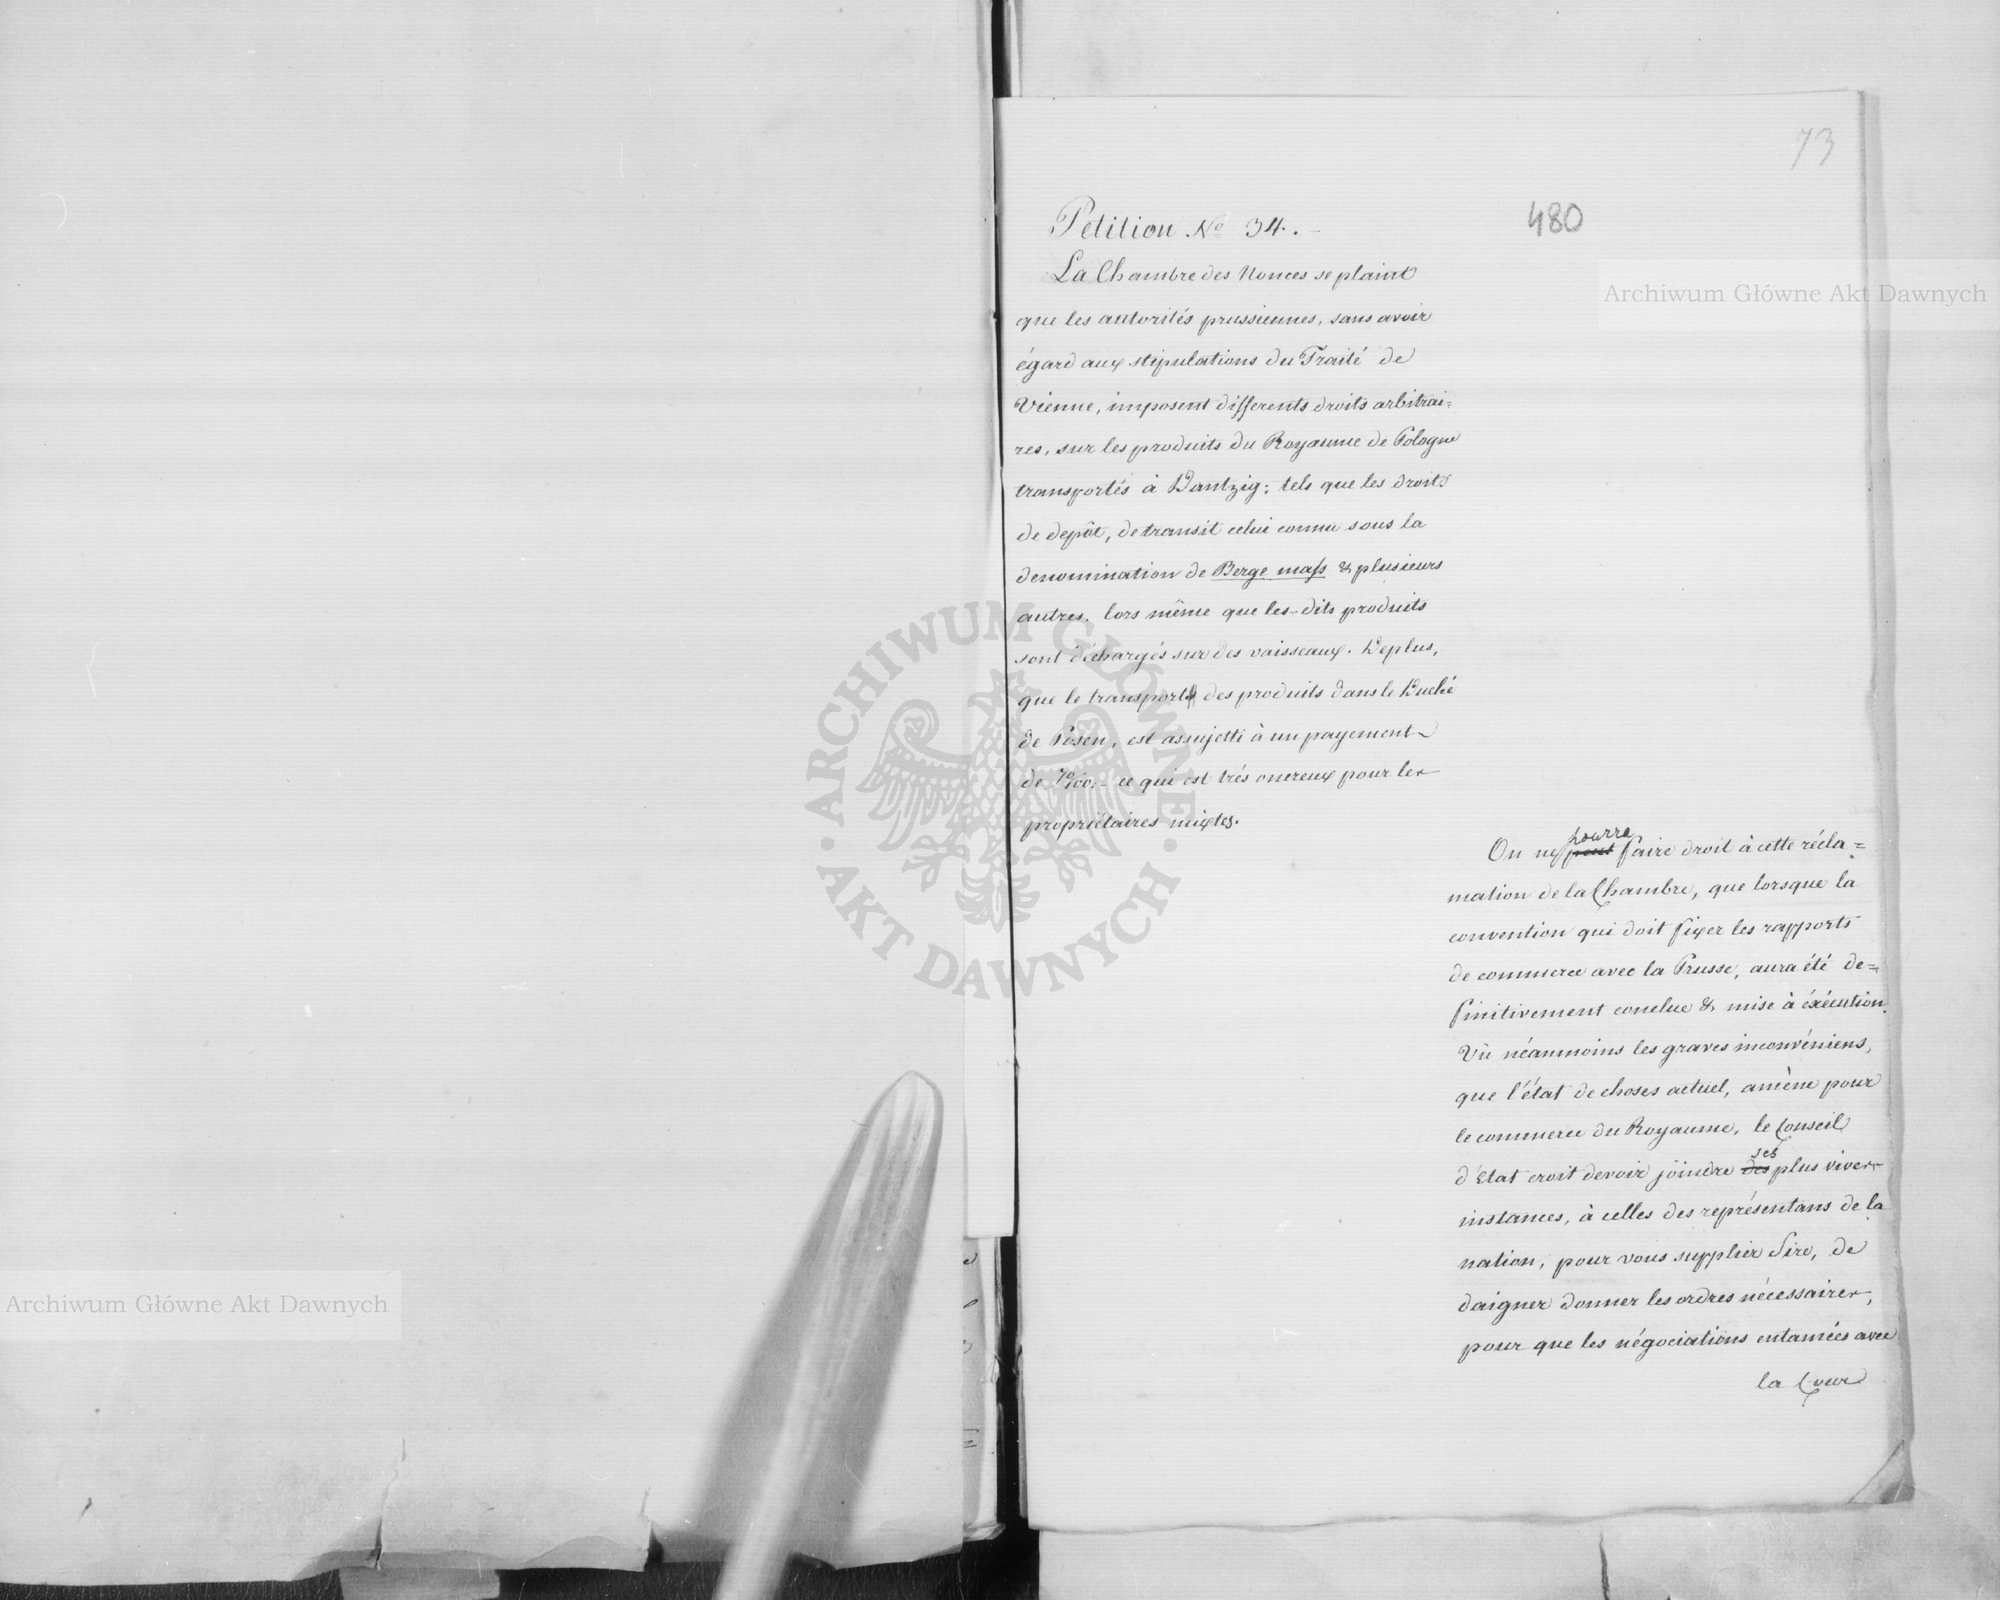 73
480
Petition № 34. –
La Chambre des Nonces se plaint
que les autorités prussiennes, sans avoir
égard aux stipulations du Traité de
Vienne, imposent differents droits arbitrai=
res, sur les produits du Royaume de Pologne
transportés à Dantzig; tels que les droits
de depôt, de transit celui connu sous la
denomination de Berge mass & plusieurs
autres. lors même que les-dits produits
sont déchargés sur des vaisseaux. Deplus,
que le transport des produits dans le Duché
de Posen, est assujetti à un payement
de ce qui est trés onereux pour les
propriétaires mixtes.
On ne pourra faire droit à cette récla=
mation de la Chambre, que lorsque la
convention qui doit fixer les rapports
de commerce avec la Prusse, aura été de=
finitivement conclue & mise à éxécution.
Vû néanmoins les graves inconvéniens,
que l'état de choses actuel, amène pour
le commerce du Royaume, le Conseil
d'Etat croit devoir joindre ses plus vives
instances, à celles des représentans de la
nation, pour vous supplier Sire, de
daigner donner les ordres nécessaires,
pour que les négociations entamées avec
la Cour
Archiwum Główne Akt Dawnych
Archiwum Główne Akt Dawnych
ARCHIWUM GŁÓWNE • AKT DAWNYCH •